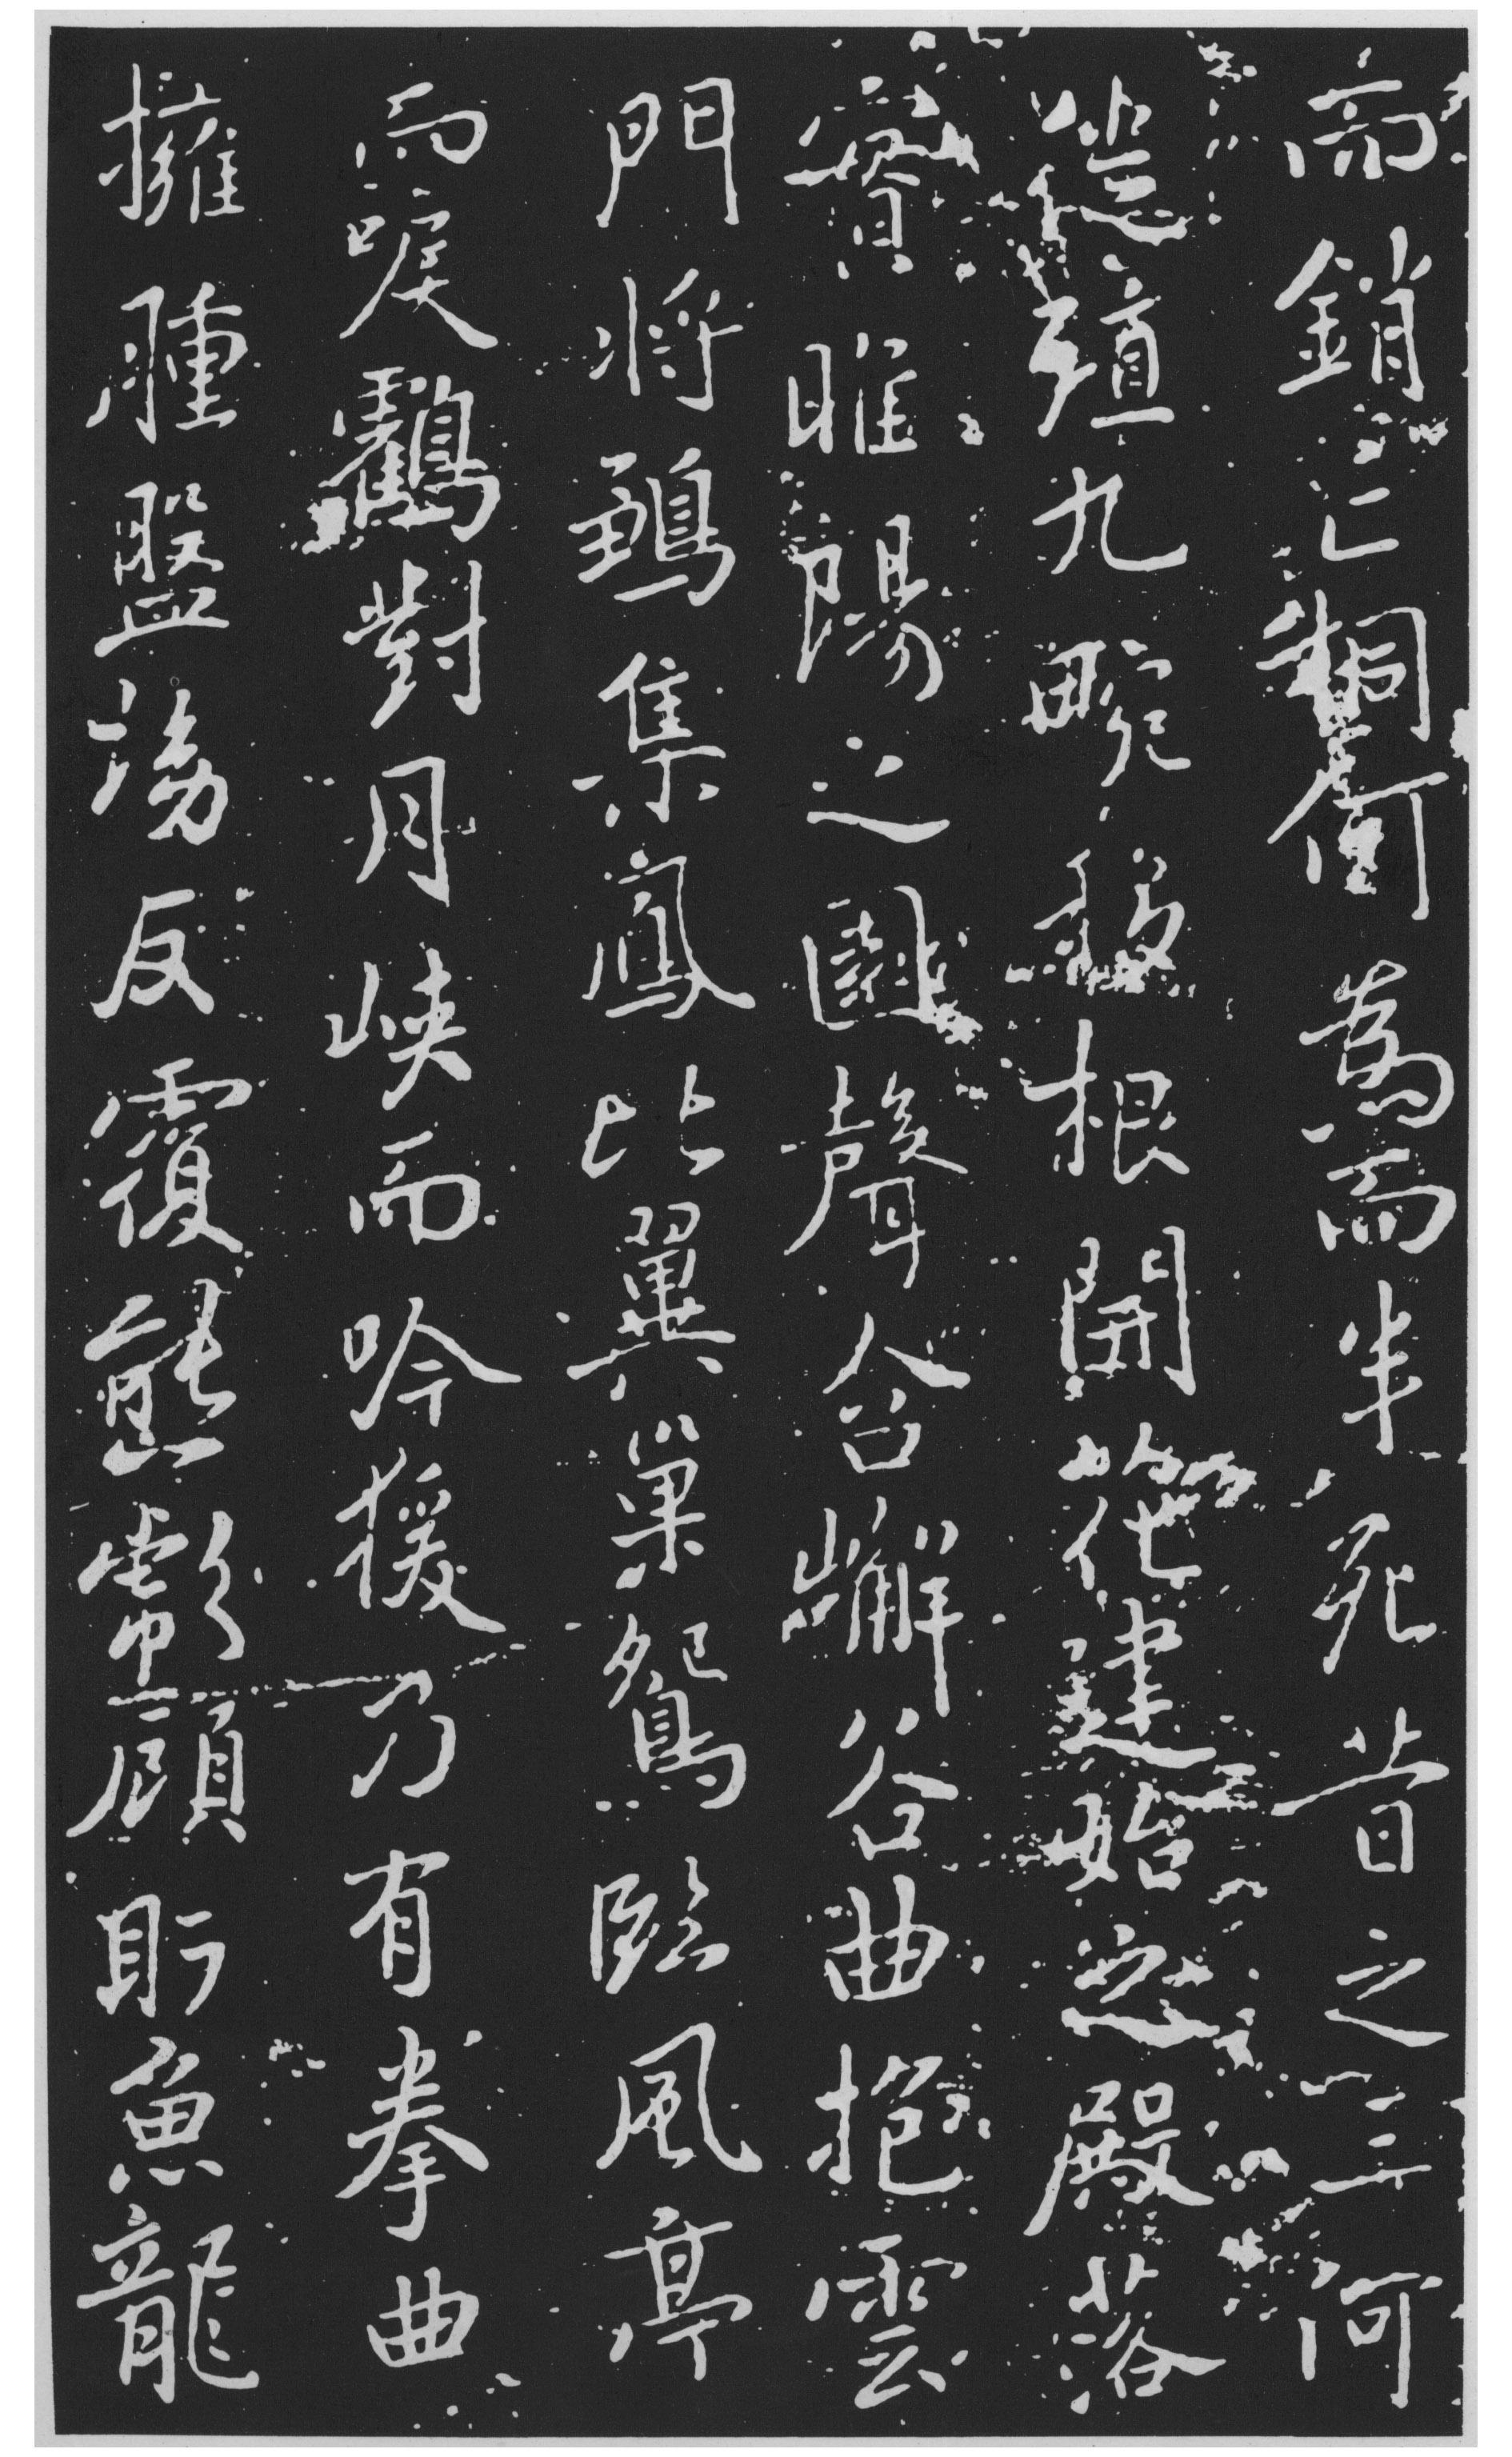 而銷亡桐何為而半死昔之三河
徙殖九畹移根開花建始之殿落
實睢陽之園聲含嶰谷曲抱雲
門将鵄集鳳比翼巢鴛臨風亭
而唳鸖對月峽而吟猨乃有拳曲
擁腫盤坳反覆熊彪顧眄魚龍